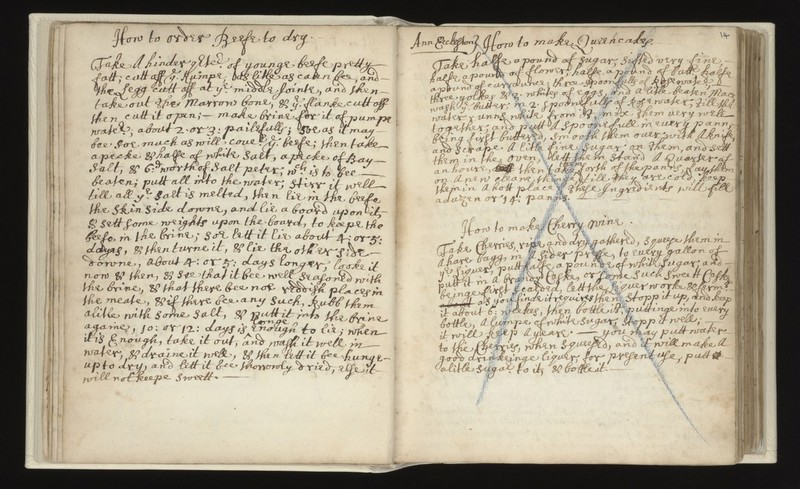 How to order Beefe to dry.
Take A hinder of younge beefe pretty
fatt; cutt off ye Rumpe, as little as can bee, and
the Legg cutt off at ye middle Jointe, and then
take out the Marrow bone, & ye flanke cutt off
then cutt it open; make brine for it of pumpe
water, about 2 or 3: pailefulls; soe as it may
bee soe much as will cover ye beefe; then take
a pecke & halfe of white Salt, a pecke of Bay
Salt, & 6d worth of Salt peter; wch is to bee
beaten; putt all into the water; stirr it well
till all ye Salt is melted, then lie in the beefe
the skin side downe, and lie a board upon it
& sett some weights upon the board, to keepe the
beefe in the brine; soe lett it lie about 4: or 5:
days, & then turne it, & lie the other side
downe, about 4: or 5: days longer, looke it
now & then, & see that it bee well seasoned with
the brine, & that there bee noe reddish places in
the meate, & if there bee any such, Rubb them
alitle with some Salt, & putt it into the brine
againe, 10: or 12: days is longe enough to lie; when
it is Enough, take it out, and wash it well in
water, & draine it well, & then lett it bee hunge
up to dry, and lett it bee thorrowly dried, else it
will not keepe sweett.
14
How to make Queencakes
Take halfe a pound of sugar, sifted very fine,
halfe a pound of flower, halfe a pound of butt, halfe
a pound of currance, three spoonfuls of Rosewater,
three yolkes & 2 whites of eggs, and a litle beaten Mace
wash ye butter in 2 spoonefulls of rosewater, till the
water runns white from it; mix them very well
together; and putt A spoonefull in every pann,
being first buttered, smooth them over with A knife,
and scrape A litle fine sugar on them, and sett
them in the oven, lett them stand A Quarter of
an houre, then take forth of the panns, lay them
on A new cleane, till they are cold; keep
them in A hott place, these Ingredients will fill
a duzen or 14: panns.
How to make Cherry wine.
Take Cherries, ripe and dry gathered, squeeze them in
A hare bagg, in A sider press, to every gallon of
ye liquor, putt halfe a pound of white sugar; and
putt it in a brandy Caske, or some such sweett Caske
beinge first scalded, lett the liquor worke & ferment
as you finde it requires then stopp it up, and keep
it about 6: weekes, then bottle it, puttinge into every
bottle, A lumpe of white sugar, stopp it well;
it will keep A yeare. you may putt water
to the Cherries, when squeesed, and it will make A
good drinkeinge liquer for present use, putt
alitle sugar to it & bottle it.